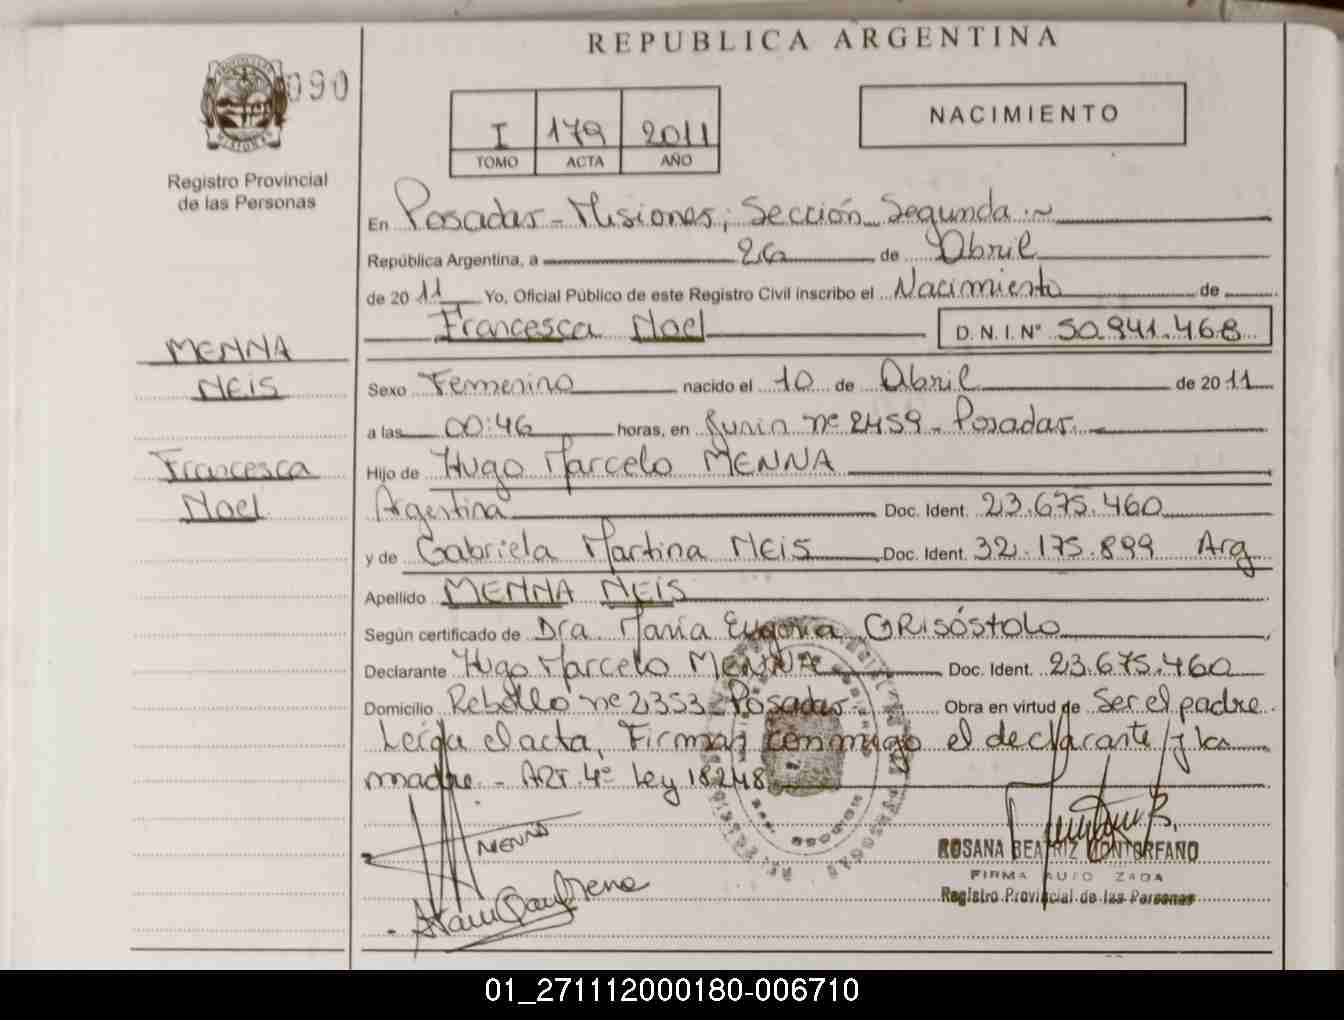 REPUBLICA ARGENTINA
090
I 179 2011
TOMO ACTA AÑO
NACIMIENTO
Registro Provincial
de las Personas
En Posadas - Misiones, Sección Segunda.~
República Argentina, a 26 de Abril
de 2011 Yo, Oficial Público de este Registro Civil inscribo el Nacimiento de
Francesca Noel D.N.I.Nº 50.941.468
MENNA
NEIS
Francesca
Noel
Sexo Femenino nacido el 10 de Abril de 2011
a las 00:46 horas, en Junin nº 2459 - Posadas.
Hijo de Hugo Marcelo MENNA
Argentina Doc. Ident. 23.675.460
y de Gabriela Martina NEIS Doc. Ident. 32.175.899 Arg
Apellido MENNA NEIS
Según certificado de Dra. María Eugenia GRISÓSTOLO
Declarante Hugo Marcelo MENNA Doc. Ident. 23.675.460
Domicilio Rebollo nº 2353 - Posadas - Obra en virtud de Ser el padre.
Leída el acta, Firman conmigo el declarante y la
madre. - ART. 4º Ley 18248
MENNA
ROSANA BEATRIZ MONTORFANO
FIRMA AUTORIZADA
Registro Provincial de las Personas
01_271112000180-006710